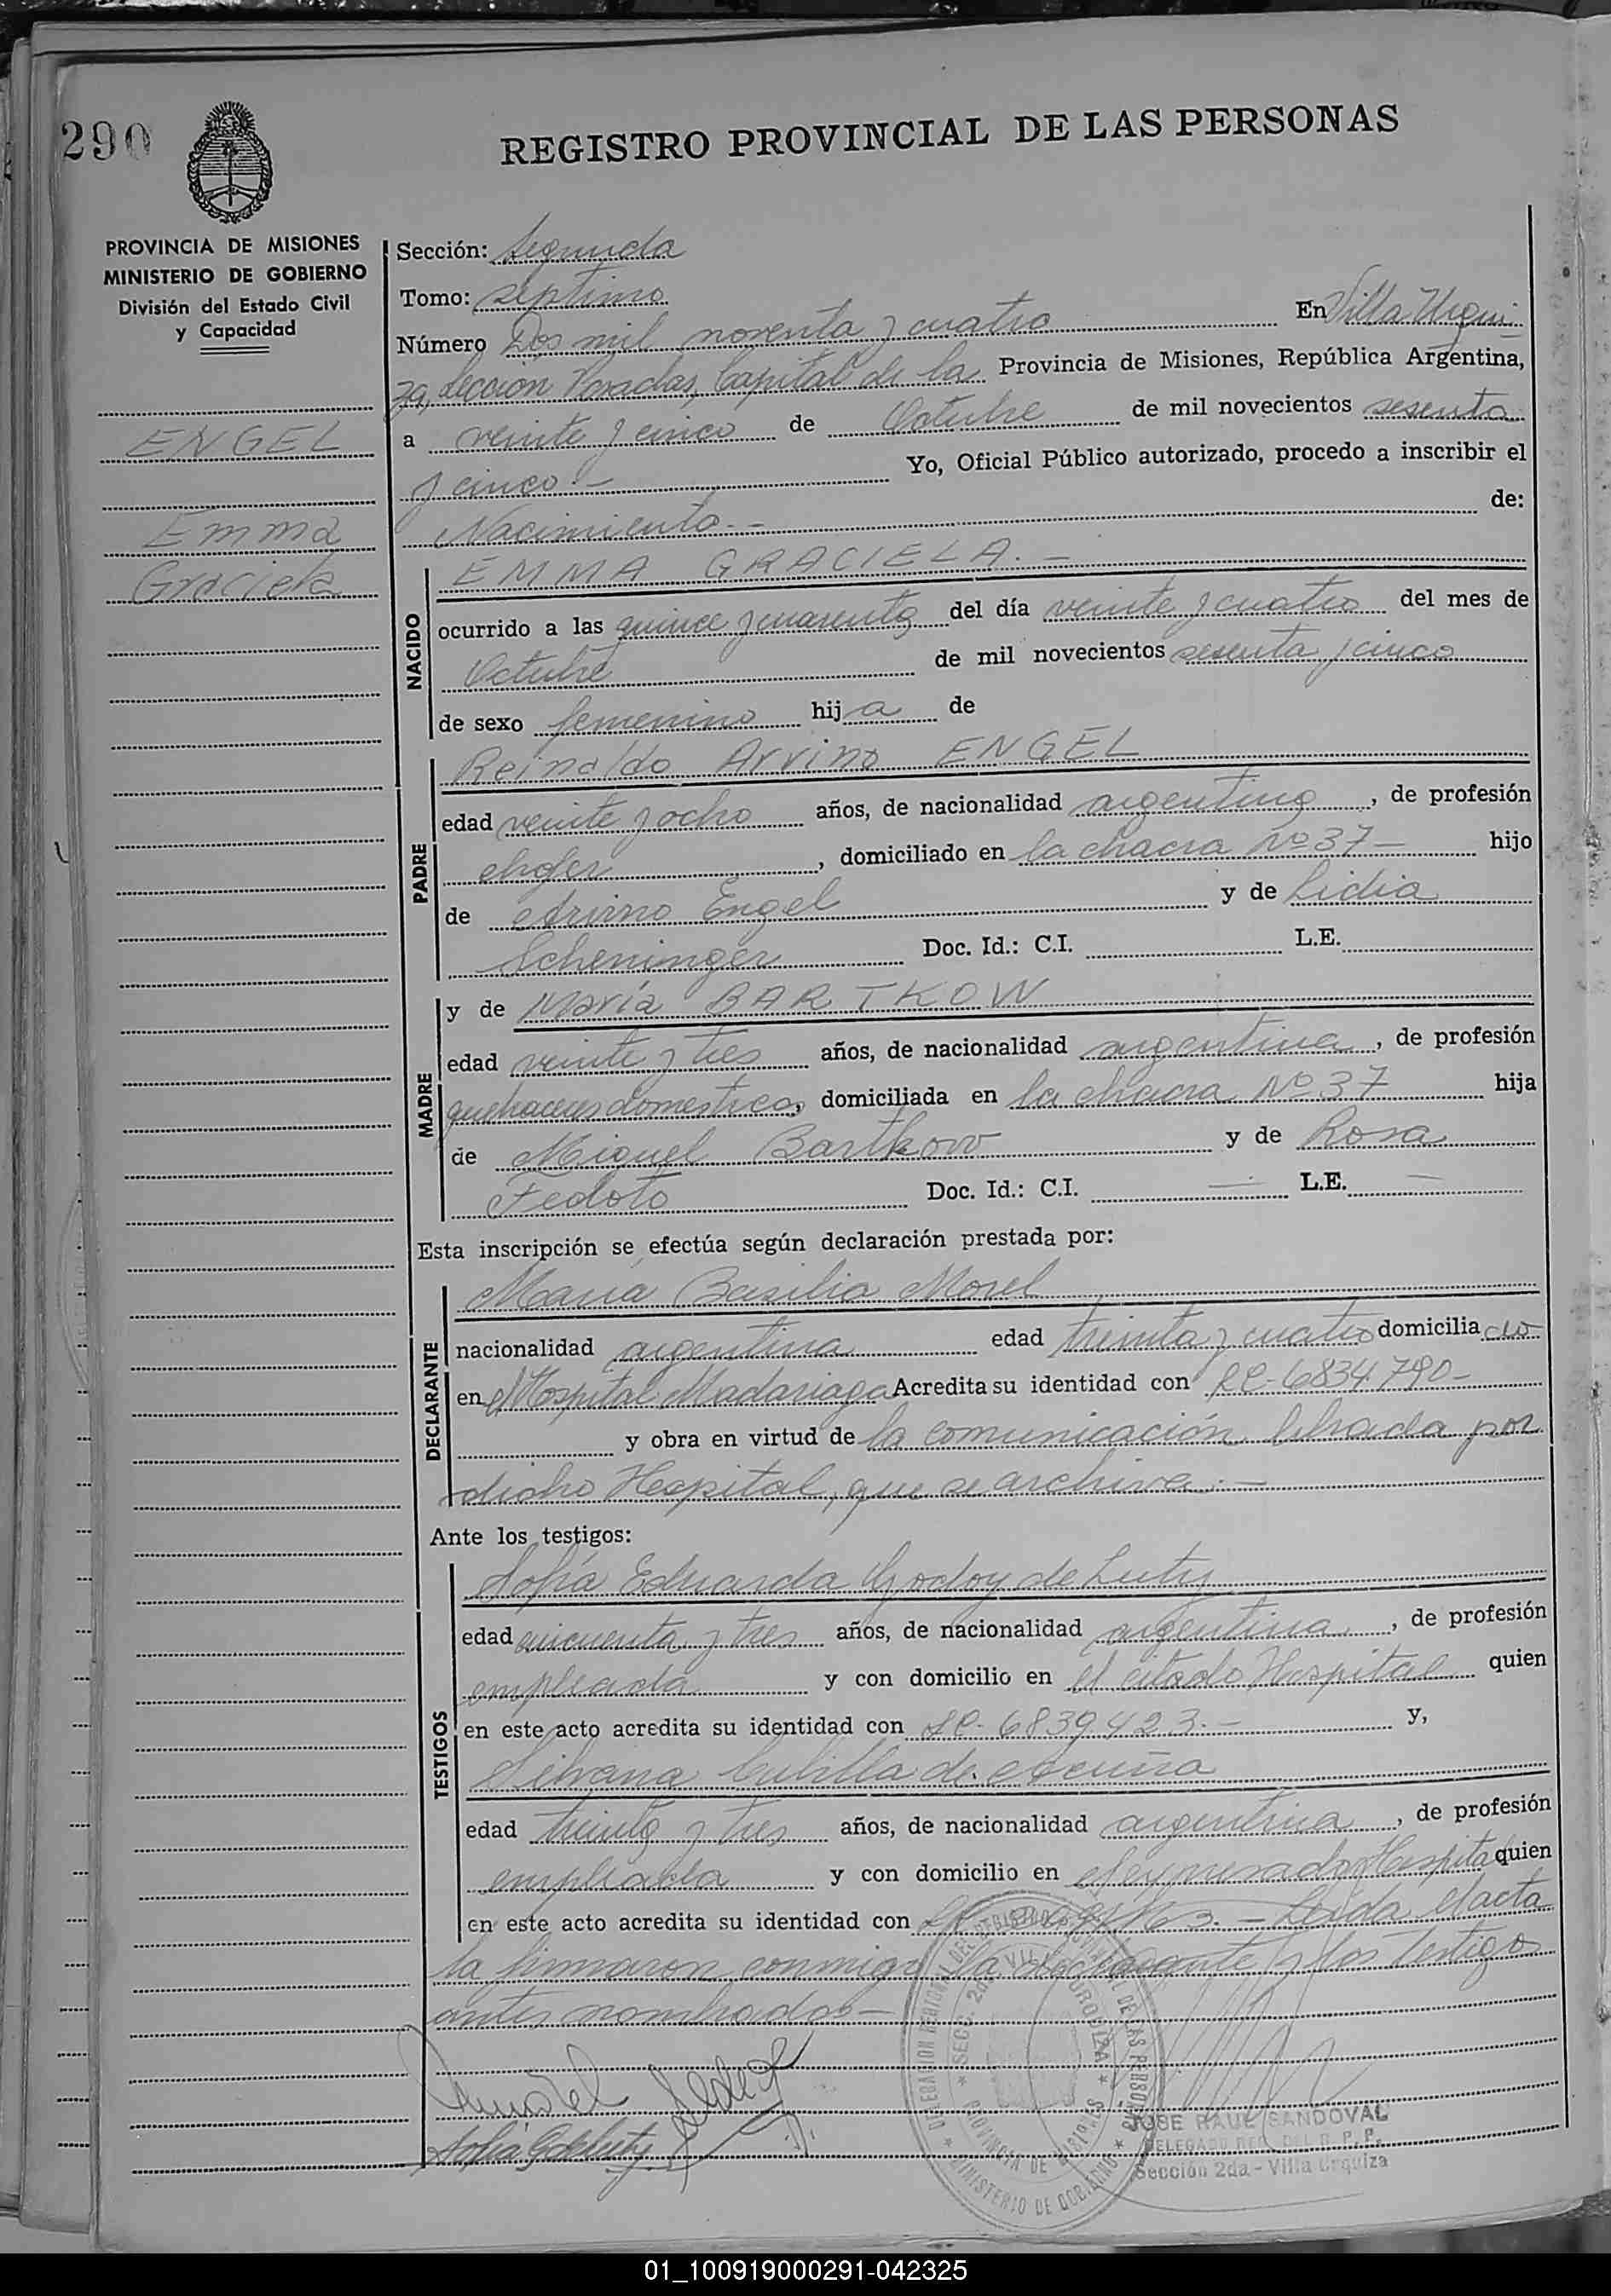 290
REGISTRO PROVINCIAL DE LAS PERSONAS
PROVINCIA DE MISIONES
MINISTERIO DE GOBIERNO
División del Estado Civil
y Capacidad
ENGEL
Emma
Graciela
Sección: Segunda
Tomo: séptimo
Número Dos mil noventa y cuatro En Villa Urqui-
za, Sección Posadas, Capital de la Provincia de Misiones, República Argentina,
a veinte y cinco de Octubre de mil novecientos sesenta
y cinco.- Yo, Oficial Público autorizado, procedo a inscribir el
Nacimiento.- de:
NACIDO
EMMA GRACIELA.-
ocurrido a las quince y cuarenta del día veinte y cuatro del mes de
Octubre de mil novecientos sesenta y cinco
de sexo femenino hija de
PADRE
Reinaldo Arvino ENGEL
edad veinte y ocho años, de nacionalidad argentino, de profesión
chofer, domiciliado en la chacra Nº 37- hijo
de Arvino Engel y de Lidia
Scheninger Doc. Id.: C.I. L.E.
MADRE
y de María BARTKOW
edad veinte y tres años, de nacionalidad argentina, de profesión
quehaceres domesticos, domiciliada en la chacra Nº 37 hija
de Miguel Bartkow y de Rosa
Fedoto Doc. Id.: C.I. — L.E. —
Esta inscripción se efectúa según declaración prestada por:
DECLARANTE
María Basilia Morel
nacionalidad argentina edad treinta y cuatro domicilia do
en el Hospital Madariaga Acredita su identidad con LC-6834790-
y obra en virtud de la comunicación librada por
dicho Hospital, que se archiva.-
Ante los testigos:
TESTIGOS
Sofía Eduarda Godoy de
edad cincuenta y tres años, de nacionalidad argentina, de profesión
empleada y con domicilio en el citado Hospital quien
en este acto acredita su identidad con LC. 6839423.- y,
Silvana Cubilla de Acuña
edad treinta y tres años, de nacionalidad argentina, de profesión
empleada y con domicilio en el expresado Hospital quien
en este acto acredita su identidad con Leída el acta
la firmaron conmigo la declarante y los testigos
antes nombrados-
SECC. 2da. VILLA URQUIZA
PROVINCIA DE MISIONES
MINISTERIO DE GOBIERNO
JOSE RAUL SANDOVAL
DELEGADO REG. DEL R. P. P.
Sección 2da - Villa Urquiza
01_100919000291-042325